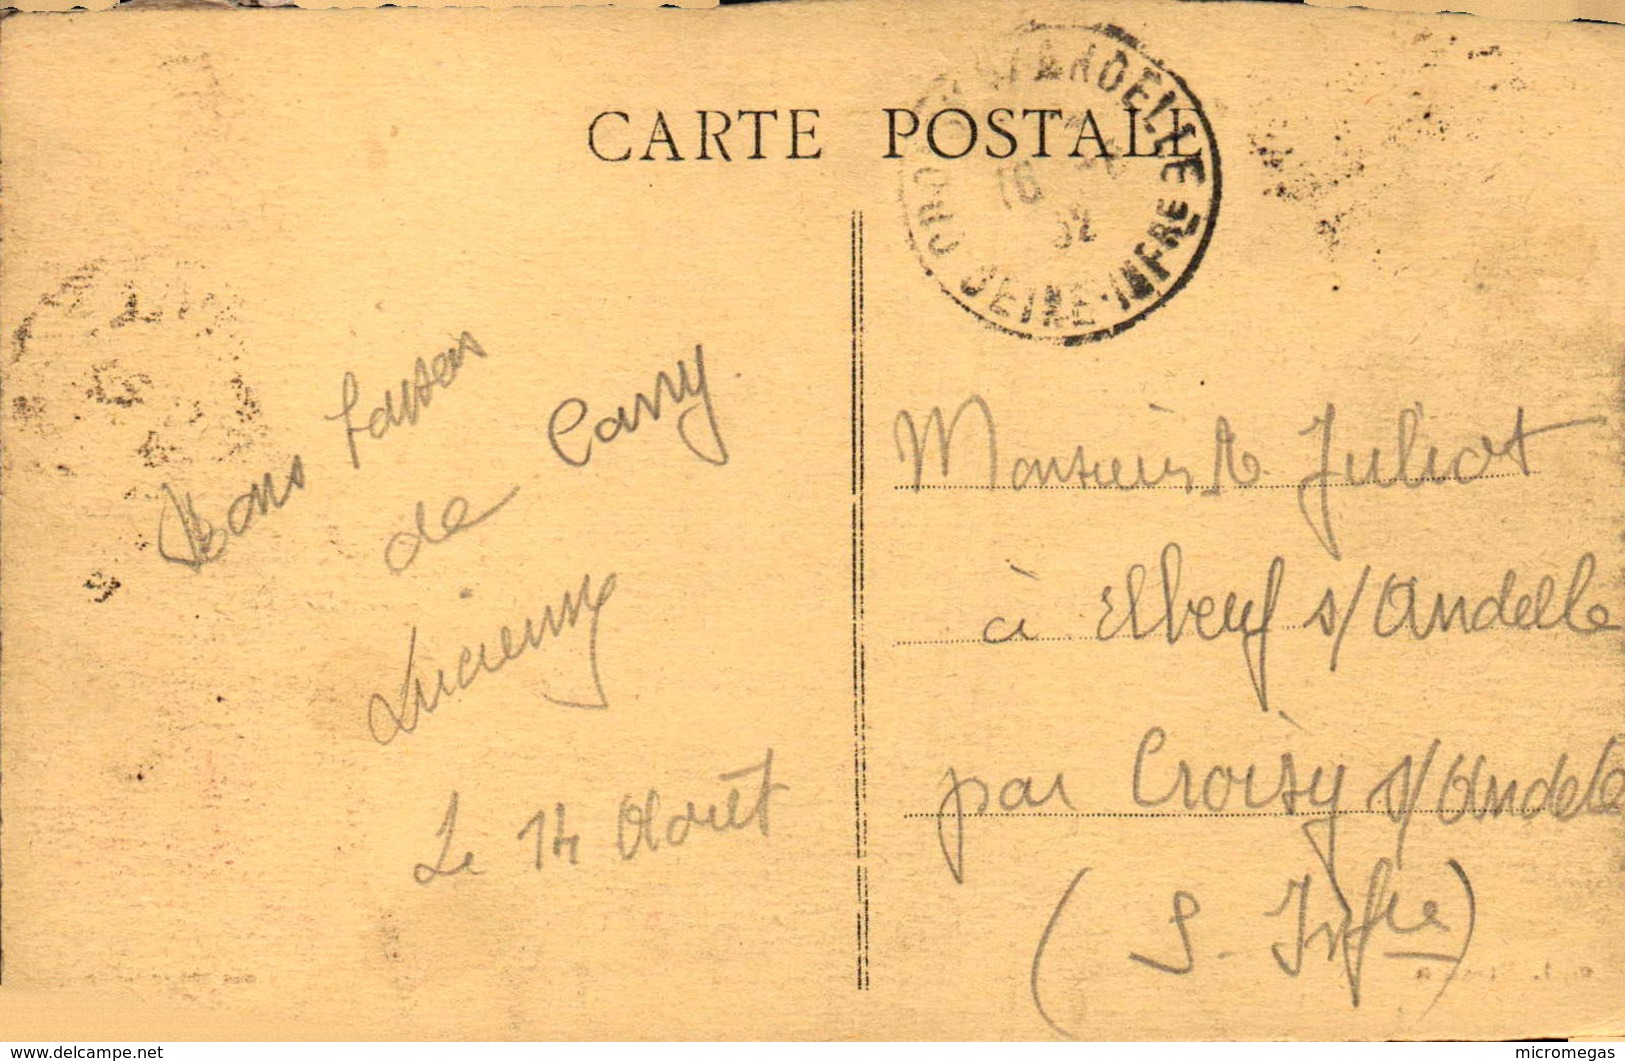 CARTE POSTALE
S/ANDELLE
SEINE-INFRE
32
Bons
de Cany
Lucienne
Le 14 Août
Monsieur Juliot
à Elbeuf s/Andelle
par Croisy s/Andelle
(S. Infre)
www.delcampe.net
micromegas